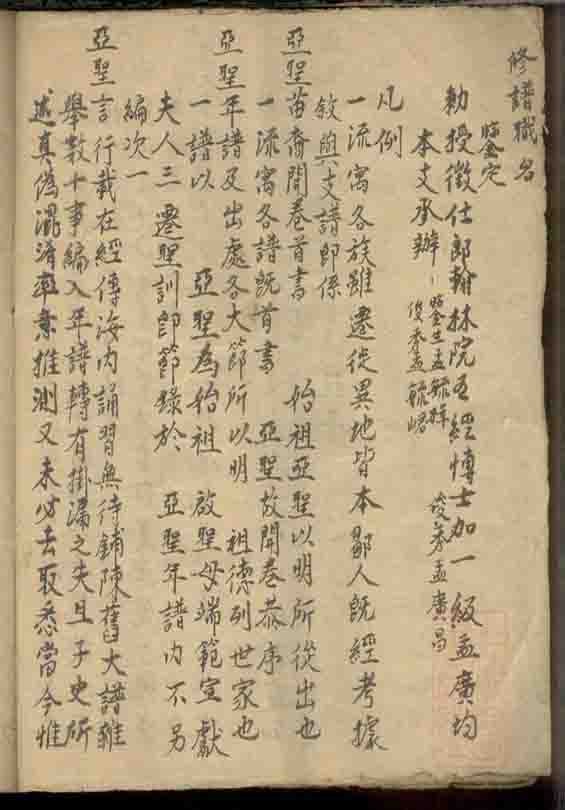 修譜職名
勅授徵仕郎翰林院五經博士加一級孟廣均
鑒定
本支承辦 監生孟毓 俊秀孟毓峮 俊秀孟廣昌
凡例
一流寓各族雖遷徙異地皆本鄒人既經考據
敘與支譜即係
亞聖苗裔開卷首書 始祖亞聖以明所從出也
一流寓各譜既首書 亞聖故開卷恭序
亞聖年譜及出處各大節所以明 祖德列世家也
一譜以 亞聖為始祖 啟聖母端範宣獻
夫人三遷聖訓即節錄於 亞聖年譜內不另
編次一
亞聖言行載在經傳海內誦習無待鋪陳舊大譜雖
舉數十事編入年譜轉有掛漏之失且子史所
述真偽混淆率意推測又未必去取悉當今惟